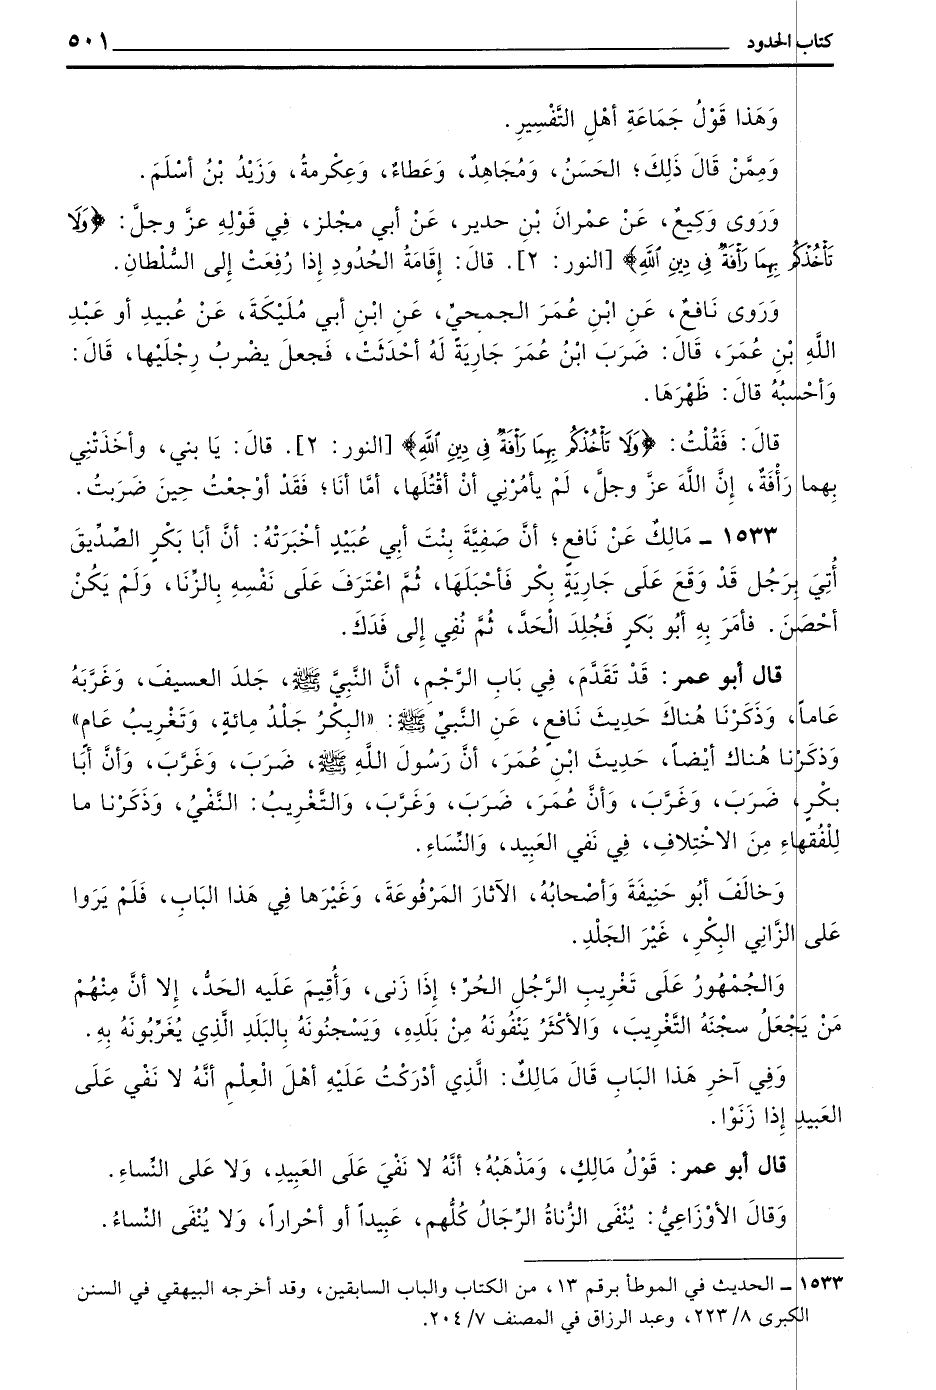 كتاب الحدود ٥٠١
وَهَذا قَوْلُ جَمَاعَةِ أهْلِ التَّفْسِيرِ.
وَمِمَّنْ قَالَ ذَلِكَ؛ الحَسَنُ، وَمُجَاهِدٌ، وَعَطاءٌ، وَعِكْرمةُ، وَزَيْدُ بْنُ أسْلَمَ.
وَرَوى وَكِيعٌ، عَنْ عمْرانَ بْنِ حدير، عَنْ أبي مجْلز، فِي قَوْلِهِ عزَّ وجلَّ: ﴿وَلَا
تَأْخُذْكُم بِهِمَا رَأْفَةٌ فِي دِينِ ٱللَّهِ﴾ [النور: ٢]. قالَ: إقَامَةُ الحُدُودِ إذَا رُفعَتْ إلى السُّلْطانِ.
وَرَوى نَافعٌ، عَنِ ابْنِ عُمَرَ الجمحيِّ، عَنِ ابْنِ أبي مُلَيْكَةَ، عَنْ عُبيدِ أو عَبْدِ
اللَّهِ بْنِ عُمَرَ، قَالَ: ضَرَبَ ابْنُ عُمَرَ جَاريَةً لَهُ أحْدَثَتْ، فَجعلَ يضْربُ رِجْلَيْها، قَالَ:
وَأحْسبُهُ قالَ: ظَهْرَهَا.
قالَ: فَقُلْتُ: ﴿وَلَا تَأْخُذْكُم بِهِمَا رَأْفَةٌ فِي دِينِ ٱللَّهِ﴾ [النور: ٢]. قالَ: يَا بني، وأخَذَتْنِي
بِهما رَأْفَةٌ، إنَّ اللَّهَ عزَّ وجلَّ، لَمْ يأمُرْنِي أنْ أقْتُلَها، أمَّا أنَا؛ فَقَدْ أوْجعْتُ حِينَ ضَرَبتُ.
١٥٣٣ ـ مَالِكٌ عَنْ نَافعٍ؛ أنَّ صَفِيَّةَ بِنْتَ أبِي عُبَيْدٍ أخْبَرَتْهُ: أنَّ أبَا بَكْرٍ الصِّدِّيقَ
أُتِيَ بِرَجُلٍ قَدْ وَقَعَ عَلَى جَارِيَةٍ بِكْرٍ فَأحْبَلَهَا، ثُمَّ اعْتَرَفَ عَلَى نَفْسِهِ بِالزِّنَا، وَلَمْ يَكُنْ
أحْصَنَ. فأمَرَ بِهِ أبُو بَكرٍ فَجُلِدَ الْحَدَّ، ثُمَّ نُفِي إلى فَدَكَ.
قال أبو عمر: قَدْ تَقَدَّمَ، فِي بَابِ الرَّجْمِ، أنَّ النَّبِيَّ ﷺ، جَلدَ العسيفَ، وَغَرَّبَهُ
عَاماً، وَذَكَرْنَا هُناكَ حَدِيثَ نَافعٍ، عَنِ النَّبيِّ ﷺ: «البِكْرُ جَلْدُ مِائةٍ، وَتَغْرِيبُ عَامٍ»
وَذكَرْنا هُناك أيْضاً، حَدِيثَ ابْنِ عُمَرَ، أنَّ رَسُولَ اللَّهِ ﷺ، ضَرَبَ، وَغَرَّبَ، وَأنَّ أبَا
بكْرٍ، ضَرَبَ، وَغَرَّبَ، وَأنَّ عُمَرَ، ضَرَبَ، وَغَرَّبَ، وَالتَّغْرِيبُ: النَّفْيُ، وَذَكَرْنا ما
لِلْفُقهاءِ مِنَ الاخْتِلافِ، فِي نَفي العَبِيدِ، وَالنِّسَاءِ.
وَخالَفَ أبُو حَنِيفَةَ وَأصْحابُهُ، الآثارَ المَرْفُوعَةَ، وَغَيْرَها فِي هَذا البَابِ، فَلَمْ يَرَوا
عَلى الزَّانِي البِكْرِ، غَيْرَ الجَلْدِ.
وَالجُمْهُورُ عَلَى تَغْرِيبِ الرَّجُلِ الحُرِّ؛ إذَا زَنى، وَأُقِيمَ عَلَيه الحَدُّ، إلا أنَّ مِنْهُمْ
مَنْ يَجْعَلُ سجْنَهُ التَّغْرِيبَ، وَالأكْثَرُ يَنْفُونَهُ مِنْ بَلَدِهِ، وَيَسْجنُونَهُ بِالبَلَدِ الَّذِي يُغَرِّبُونَهُ بِهِ.
وَفِي آخرِ هَذا البَابِ قَالَ مَالِكٌ: الَّذِي أدْرَكْتُ عَلَيْهِ أهْلَ الْعِلْمِ أنَّهُ لا نَفْي عَلَى
العَبِيدِ إذَا زَنَوْا.
قال أبو عمر: قَوْلُ مَالِكٍ، وَمَذْهَبُهُ؛ أنَّهُ لا نَفْيَ عَلَى العَبِيدِ، وَلا عَلى النِّساءِ.
وَقالَ الأوْزَاعِيُّ: يُنْفَى الزُّناةُ الرِّجَالُ كُلُّهم، عَبِيداً أو أحْراراً، وَلا يُنْفَى النِّساءُ.
١٥٣٣ ـ الحديث في الموطأ برقم ١٣، من الكتاب والباب السابقين، وقد أخرجه البيهقي في السنن
الكبرى ٨/ ٢٢٣، وعبد الرزاق في المصنف ٧/ ٢٠٤.